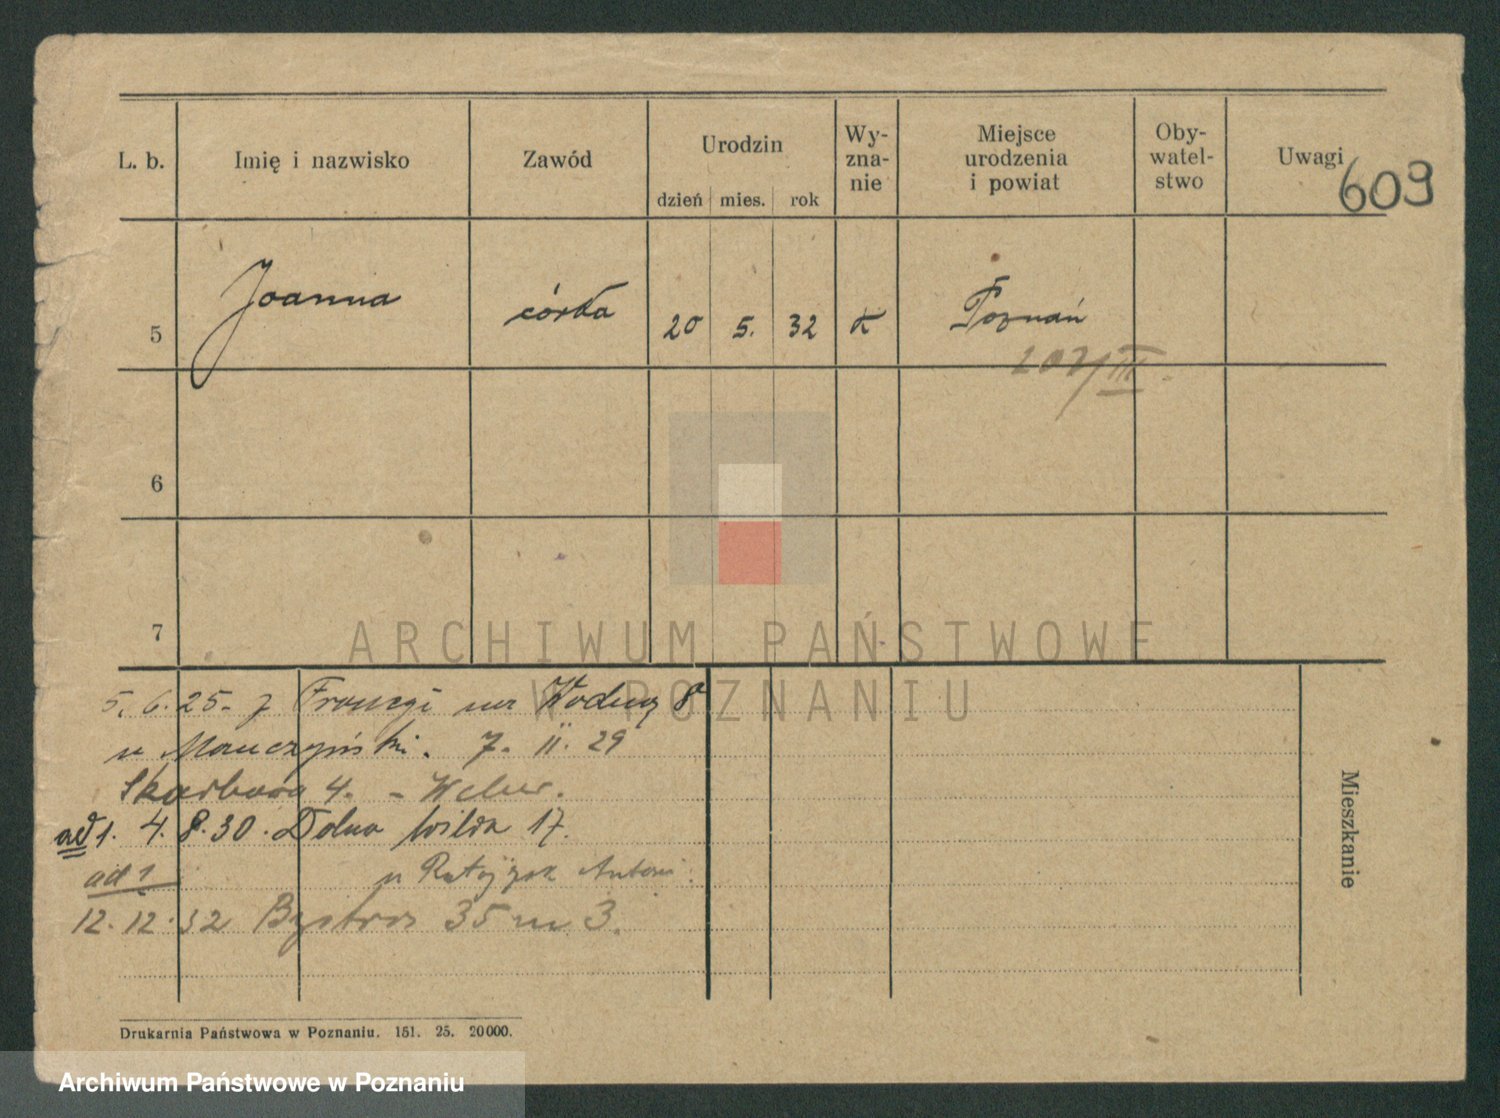 L. b. Imię i nazwisko Zawód Urodzin dzień mies. rok Wy-zna-nie Miejsce urodzenia i powiat Oby-watel-stwo Uwagi
609
5 Joanna córka 20 5. 32 k Poznań
6
7
ARCHIWUM PAŃSTWOWE
W POZNANIU
5. 6. 25. z Francji na Wodną 8
u Mauczyński. 7. II. 29
Skarbowa 4. - Weber.
ad 1. 4. 8. 30. Dolna Wilda 17.
ad 1 u Antoni
12. 12. 32 Bystra 35 m 3.
Mieszkanie
Drukarnia Państwowa w Poznaniu. 151. 25. 20000.
Archiwum Państwowe w Poznaniu